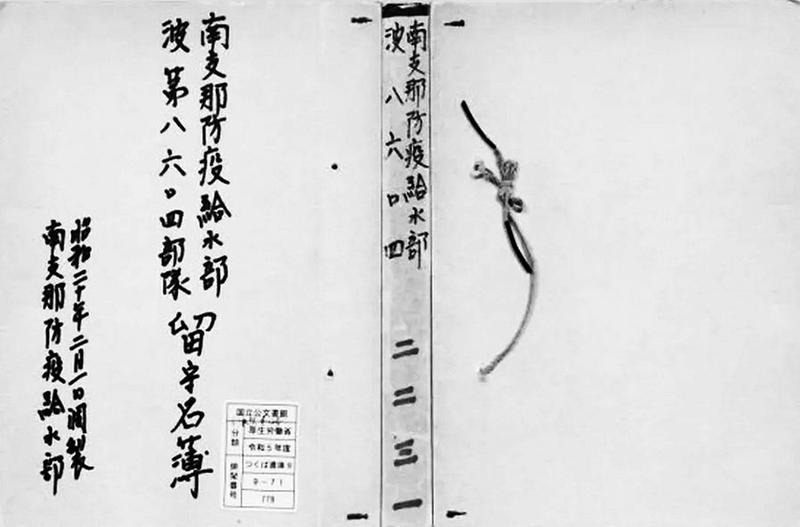 南支那防疫給水部
波第八六〇四部隊
留守名簿
昭和二十年二月一日調製
南支那防疫給水部
南支那防疫給水部
波八六〇四
二二三一
国立公文書館
分類
厚生労働省
令和5年度
つくば書庫9
排架番号
9-71